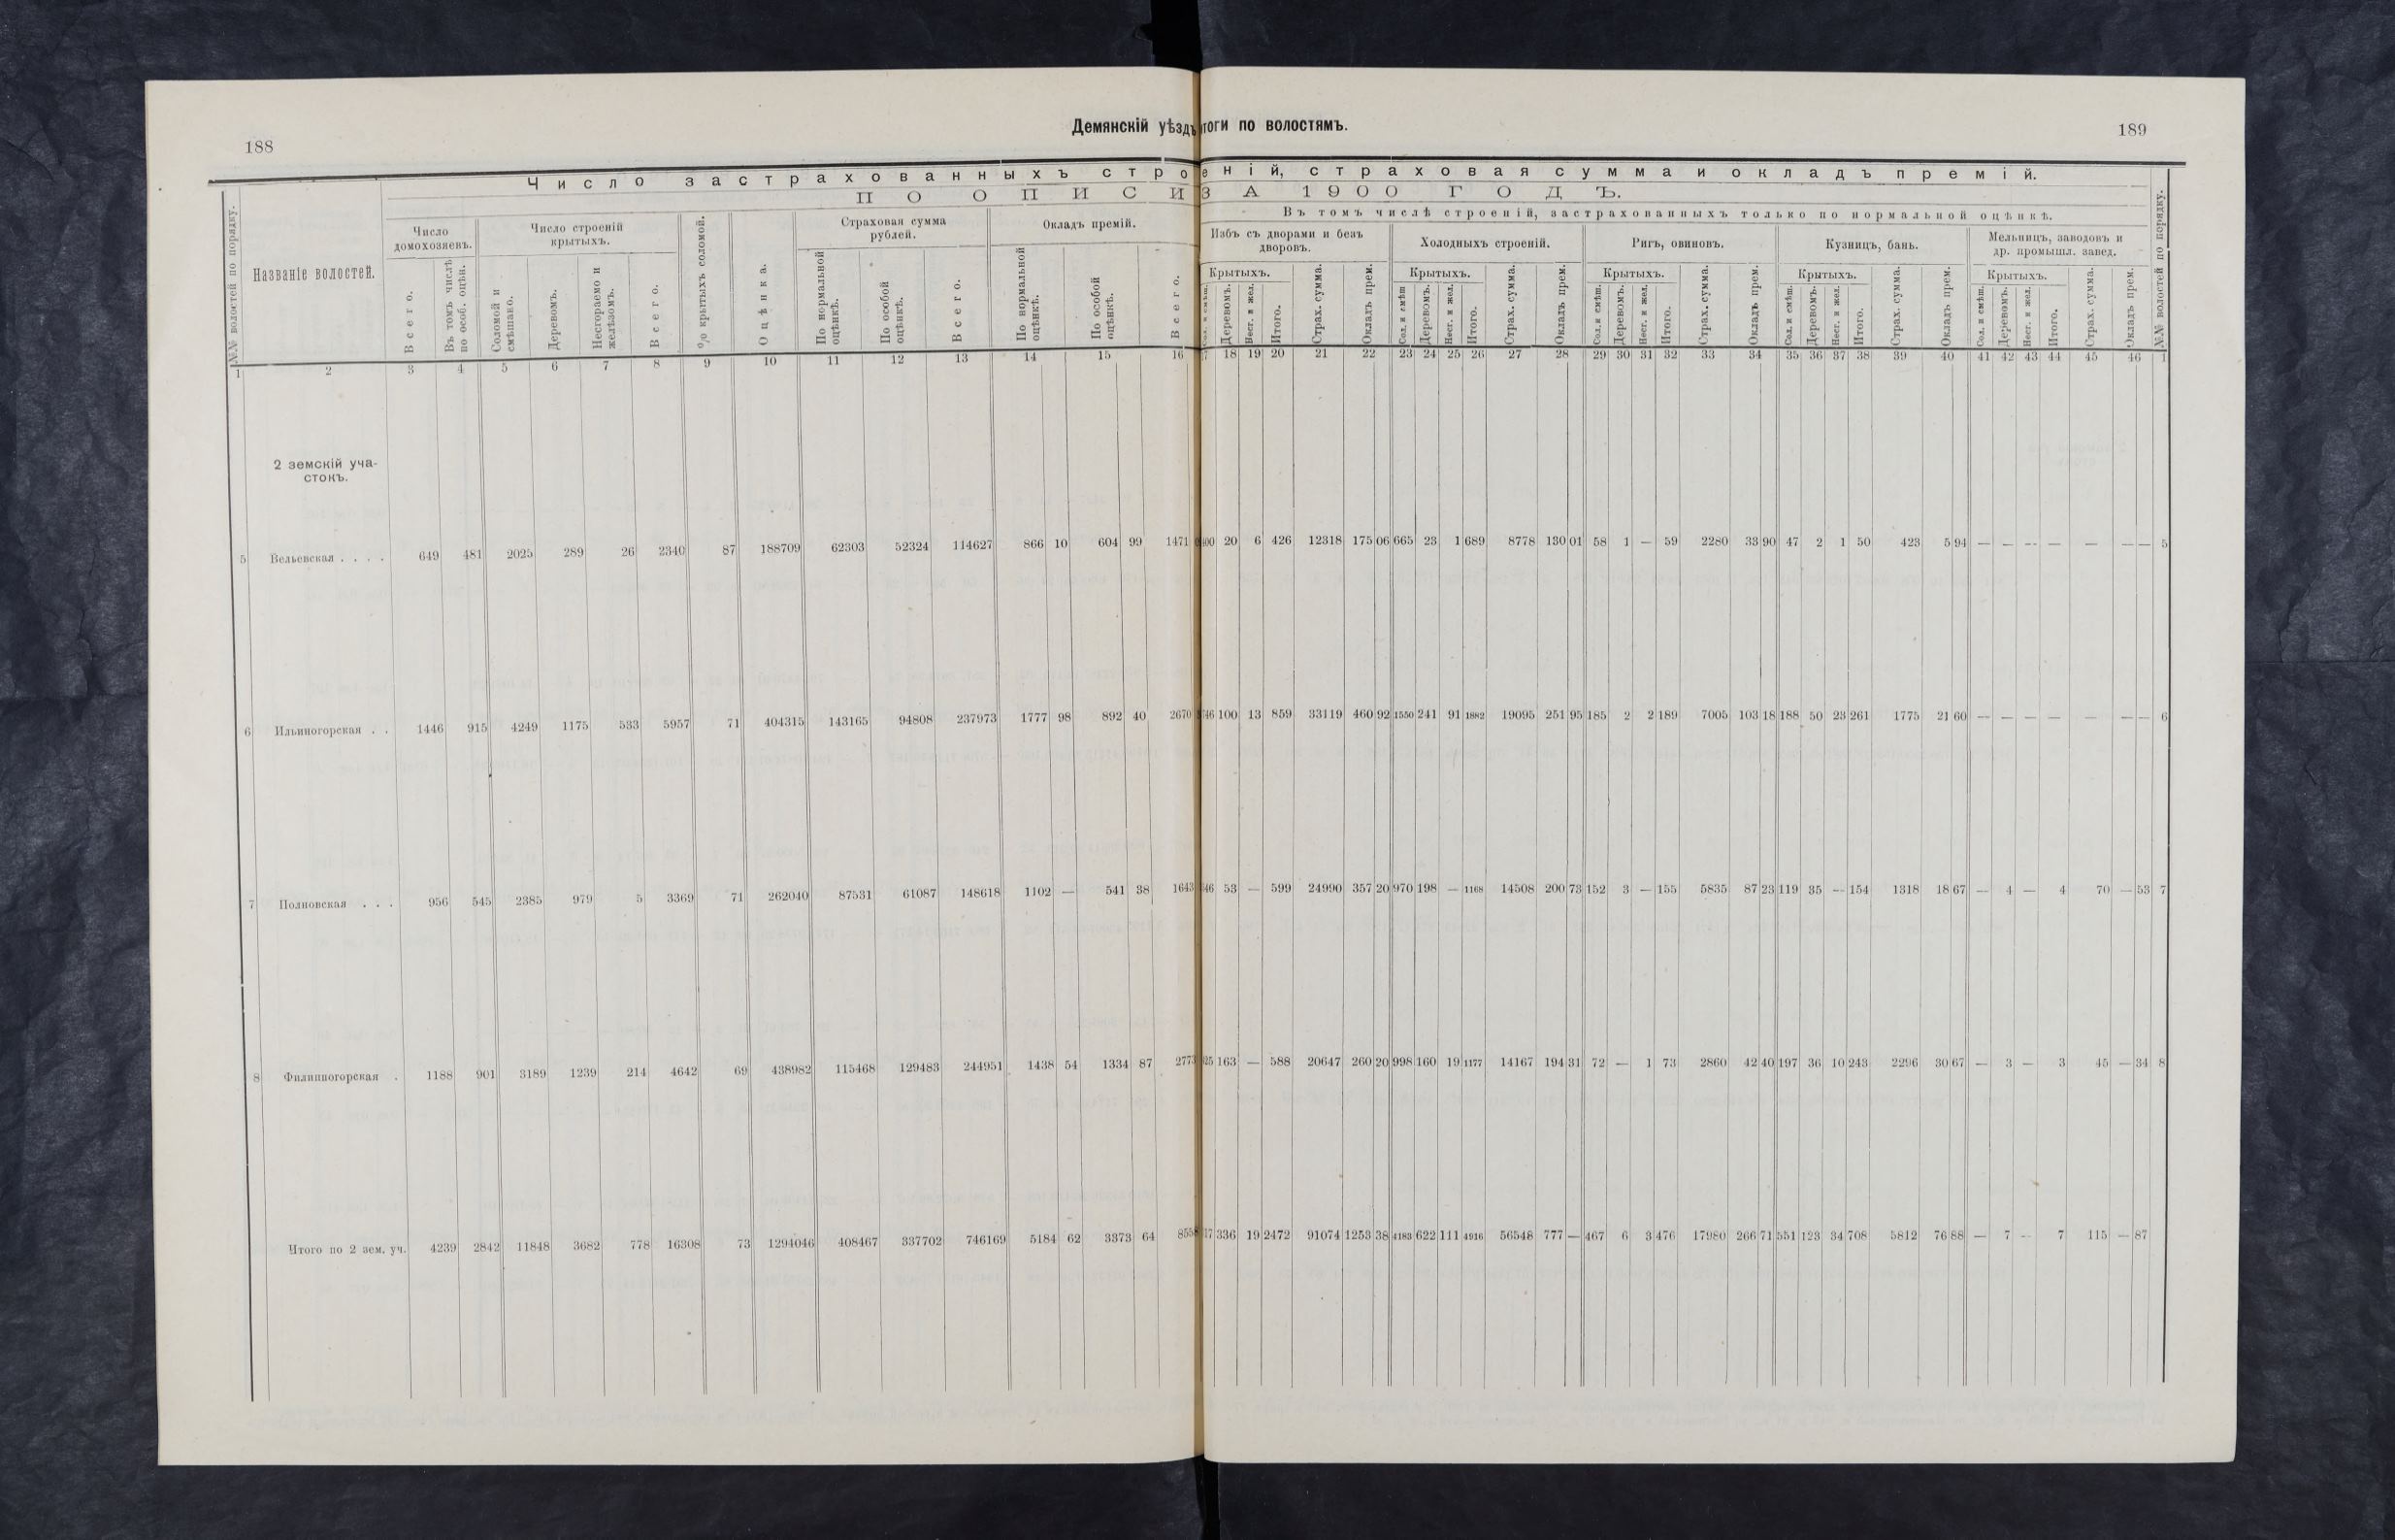 188
Демянскій уѣздъ
тоги по волостямъ.
189
Число застрахованныхъ строеній, страховая сумма и окладъ премій.
ПО ОПИСИ ЗА 1900 ГОДЪ.
Въ томъ числѣ строеній, застрахованныхъ только по нормальной оцѣнкѣ.
№№ волостей по порядку.
Названіе волостей.
Число домохозяевъ.
Всего.
Въ томъ числѣ по особ. оцѣн.
Число строеній крытыхъ.
Соломой и смѣшано.
Деревомъ.
Несгораемо и желѣзомъ.
Всего.
% крытыхъ соломой.
Оцѣнка.
Страховая сумма рублей.
По нормальной оцѣнкѣ.
По особой оцѣнкѣ.
Всего.
Окладъ премій.
По нормальной оцѣнкѣ.
По особой оцѣнкѣ.
Всего.
Избъ съ дворами и безъ дворовъ.
Крытыхъ.
Деревомъ.
Несг. и жел.
Итого.
Страх. сумма.
Окладъ прем.
Холодныхъ строеній.
Крытыхъ.
Сол. и смѣш
Деревомъ.
Несг. и жел.
Итого.
Страх. сумма.
Окладъ прем.
Ригъ, овиновъ.
Крытыхъ.
Сол. и смѣш.
Деревомъ.
Несг. и жел.
Итого.
Страх. сумма.
Окладъ прем.
Кузницъ, бань.
Крытыхъ.
Сол. и смѣш.
Деревомъ.
Несг. и жел.
Итого.
Страх. сумма.
Окладъ прем.
Мельницъ, заводовъ и др. промышл. завед.
Крытыхъ.
Сол. и смѣш.
Деревомъ.
Несг. и жел.
Итого.
Страх. сумма.
Окладъ прем.
№№ волостей по порядку.
1 2 3 4 5 6 7 8 9 10 11 12 13 14 15 16 18 19 20 21 22 23 24 25 26 27 28 29 30 31 32 33 34 35 36 37 38 39 40 41 42 43 44 45 46 1
2 земскій уча-
стокъ.
5 Вельевская . . . . 649 481 2025 289 26 2340 87 188709 62303 52324 114627 866 10 604 99 1471 400 20 6 426 12318 175 06 665 23 1 689 8778 130 01 58 1 — 59 2280 33 90 47 2 1 50 423 5 94 — — — — — — — 5
6 Ильиногорская . . 1446 915 4249 1175 533 5957 71 404315 143165 94808 237973 1777 98 892 40 2670 746 100 13 859 33119 460 92 1550 241 91 1882 19095 251 95 185 2 2 189 7005 103 18 188 50 23 261 1775 21 60 — — — — — — — 6
7 Полновская . . . 956 545 2385 979 5 3369 71 262040 87531 61087 148618 1102 — 541 38 1643 546 53 — 599 24990 357 20 970 198 — 1168 14508 200 73 152 3 — 155 5835 87 23 119 35 — 154 1318 18 67 — 4 — 4 70 — 53 7
8 Филипногорская . 1188 901 3189 1239 214 4642 69 438982 115468 129483 244951 1438 54 1334 87 2773 425 163 — 588 20647 260 20 998 160 19 1177 14167 194 31 72 — 1 73 2860 42 40 197 36 10 243 2296 30 67 — 3 — 3 45 — 34 8
Итого по 2 зем. уч. 4239 2842 11848 3682 778 16308 73 1294046 408467 337702 746169 5184 62 3373 64 8558 17 336 19 2472 91074 1253 38 4183 622 111 4916 56548 777 — 467 6 3 476 17980 266 71 551 123 34 708 5812 76 88 — 7 — 7 115 — 87